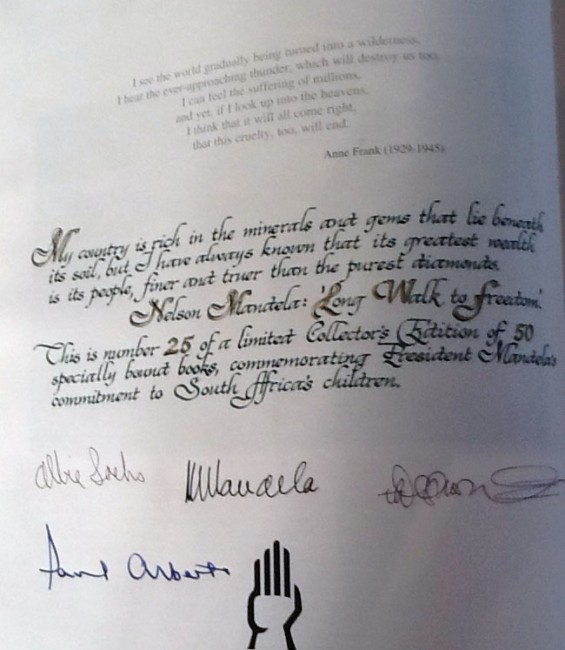 I see the world gradually being turned into a wilderness,
I hear the ever-approaching thunder, which will destroy us too,
I can feel the suffering of millions,
and yet, if I look up into the heavens,
I think that it will all come right,
that this cruelty, too, will end.
Anne Frank (1929-1945)
My country is rich in the minerals and gems that lie beneath
its soil, but I have always known that its greatest wealth
is its people, finer and truer than the purest diamonds.
Nelson Mandela: 'Long Walk to Freedom'.
This is number 25 of a limited Collector's Edition of 50
specially bound books, commemorating President Mandela's
commitment to South Africa's children.
Albie Sachs
NMandela